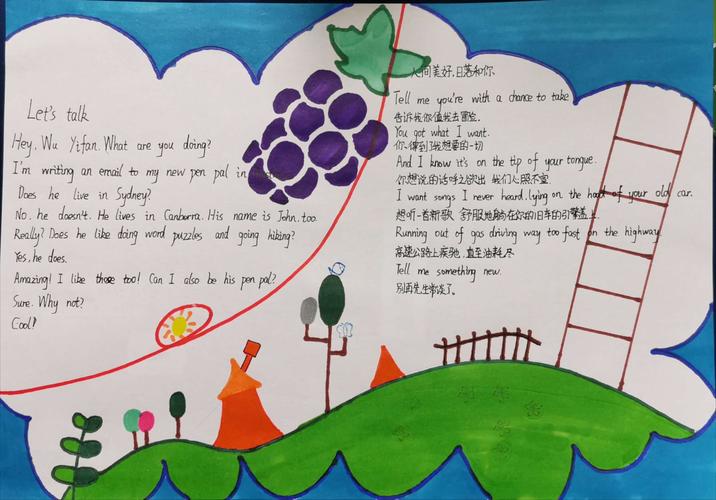 Let's talk
Hey, Wu Yifan. What are you doing?
I'm writing an email to my new pen pal in
Does he live in Sydney?
No. he doesn't. He lives in Canborra. His name is John. too.
Really? Does he like doing word puzzles and going hiking?
Yes, he does.
Amazing! I like those too! Can I also be his pen pal?
Sure. Why not?
Cool!
人间美好,日落和你
Tell me you're with a chance to take
告诉我你值我去冒险.
You got what I want.
你得到了我想要的一切
And I know it's on the tip of your tongue.
你想说的话呼之欲出 我们心照不宣.
I want songs I never heard, lying on the hood of your old car.
想听一首新歌 舒服地躺在你的旧车的引擎盖上
Running out of gas driving way too fast on the highway.
高速公路上疾驰,直至油耗尽
Tell me something new.
别再老生常谈了。